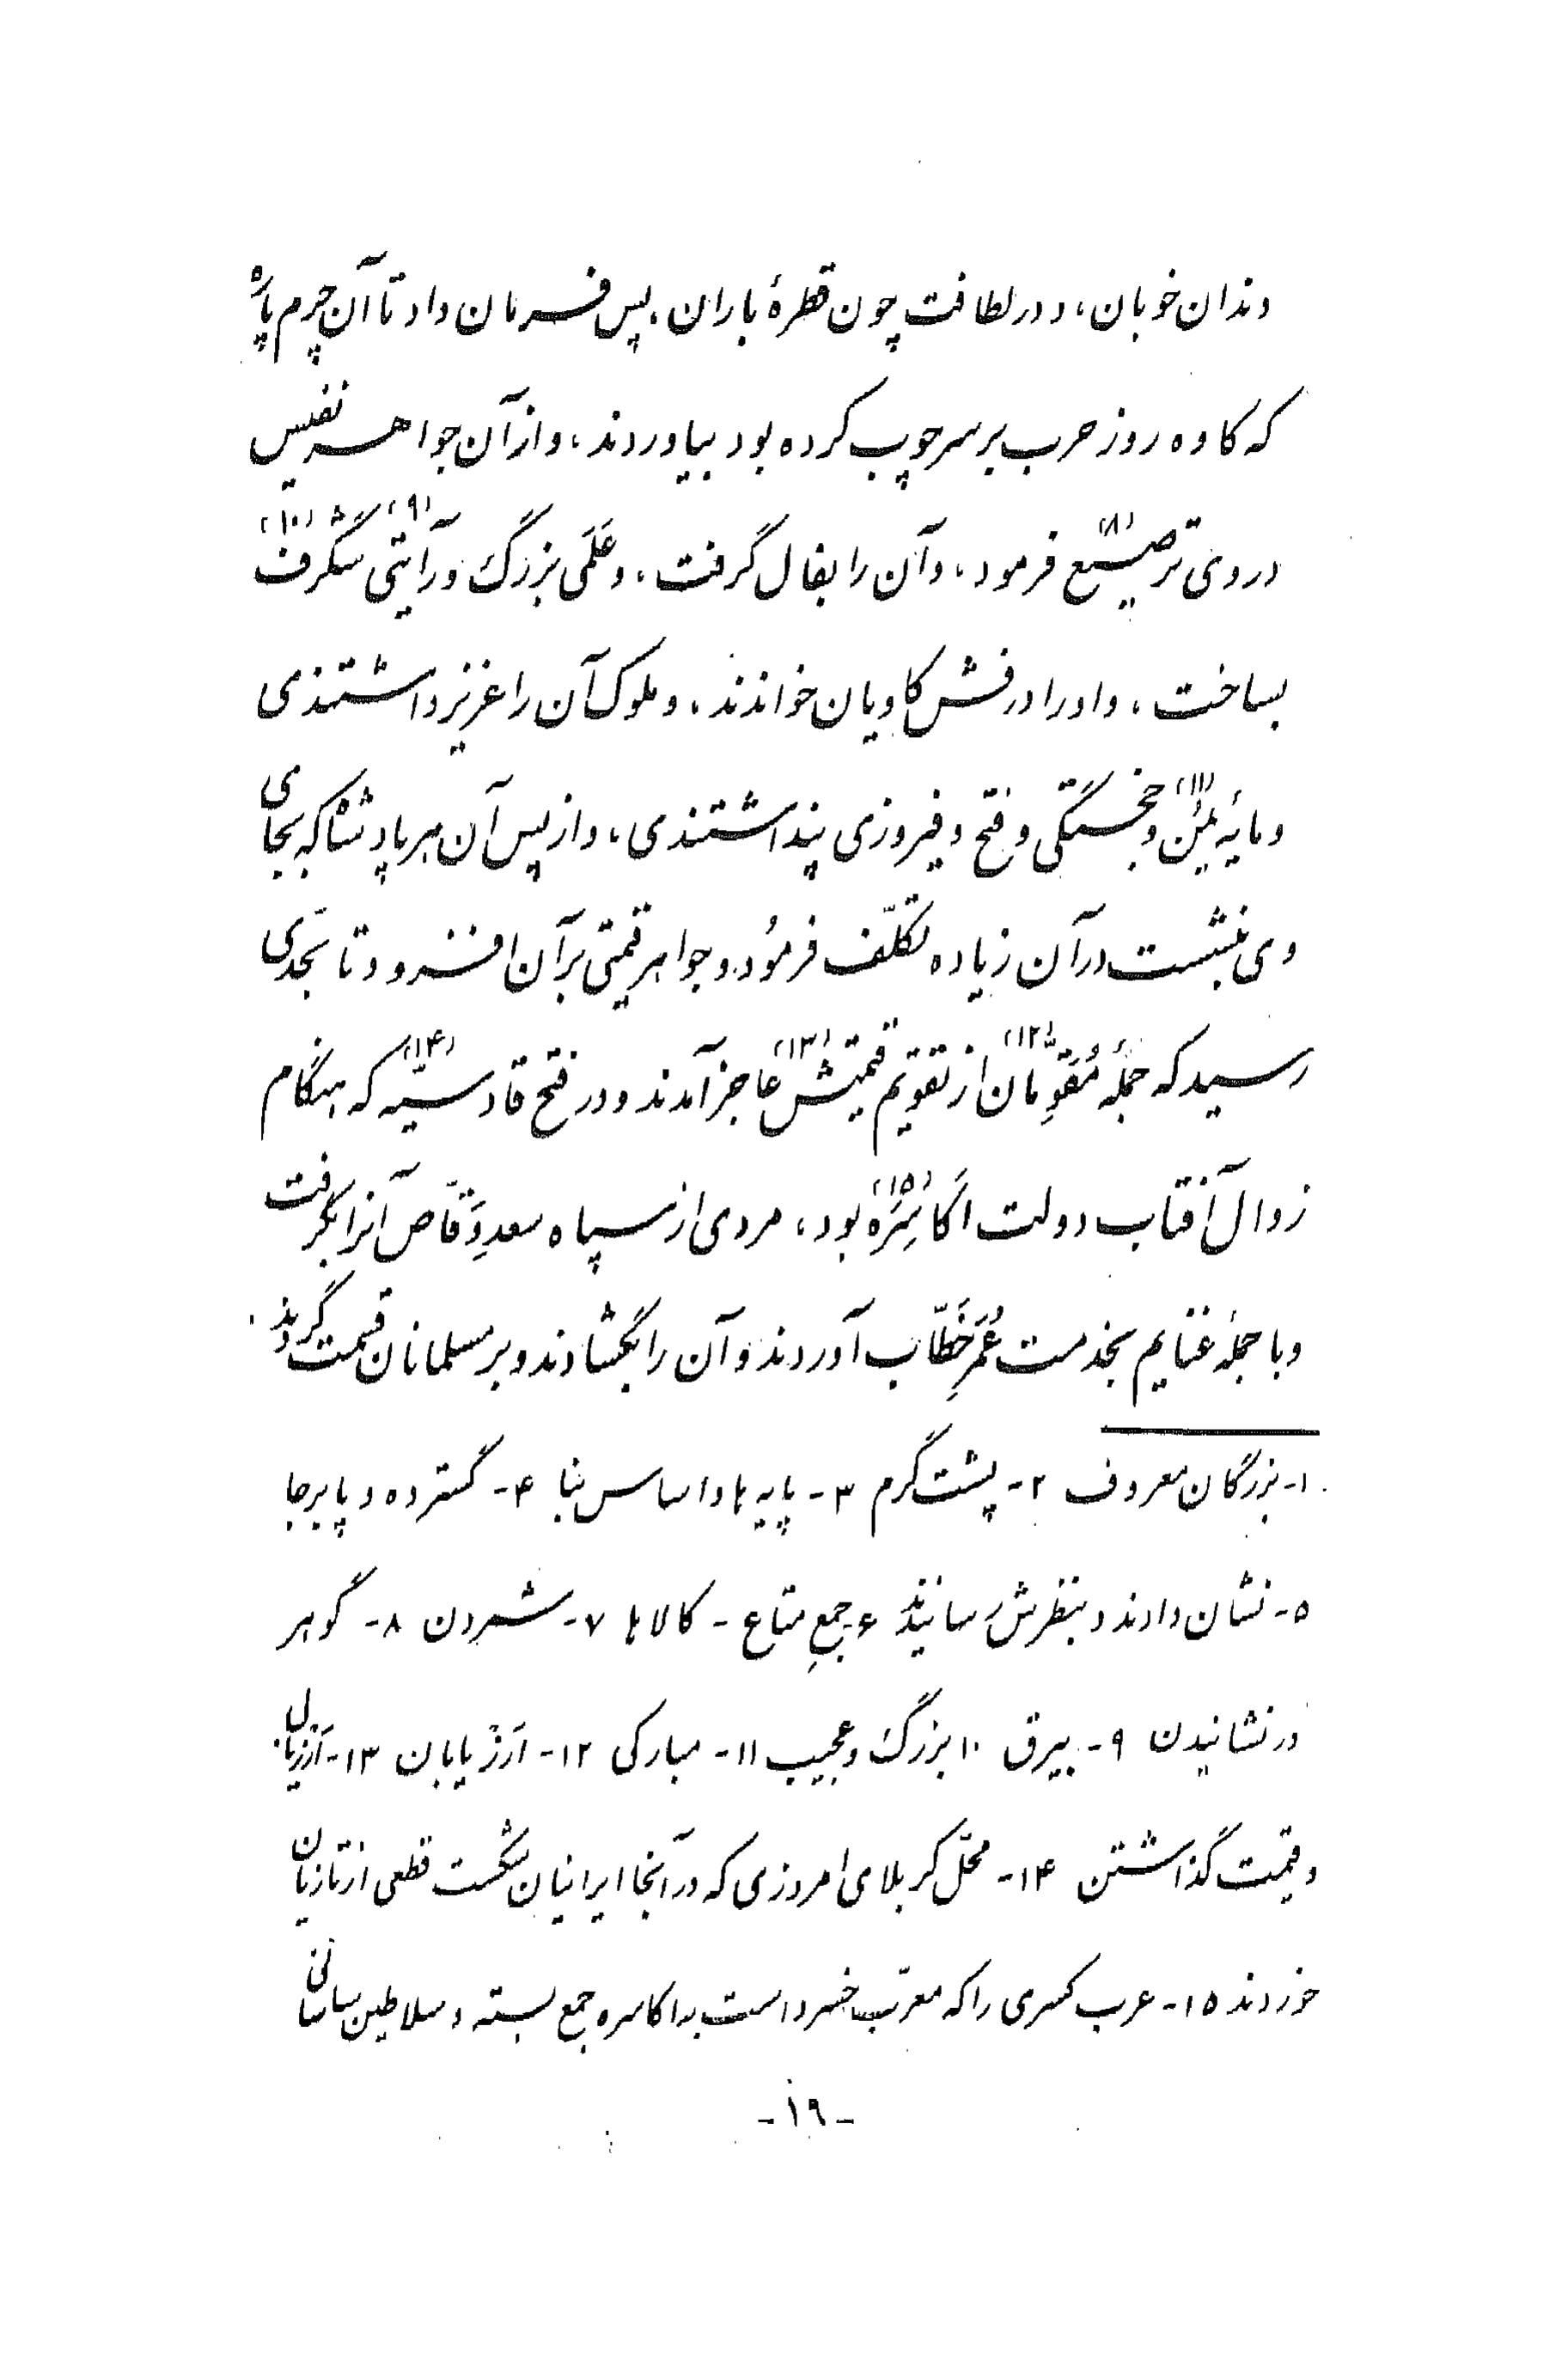 دندان خوبان، و در لطافت چون قطرهٔ باران، پس فرمان داد تا آن چرم پاره
که کاوه روز حرب بر سر چوب کرده بود بیاوردند، و از آن جواهر نفیس
در وی ترصیع (۸) فرمود، و آن را بفال گرفت، و عَلَمی بزرگ و رآیتی (۹) شگرف (۱۰)
بساخت، و او را درفش کاویان خواندند، و ملوک آن را عزیز داشتندی
و مایهٔ یُمْن (۱۱) و خجستگی و فتح و فیروزی پنداشتندی، و از پس آن هر پادشاه که بجای
وی بنشست در آن زیاده تکلّف فرمُود و جواهر قیمتی بر آن افزود تا بحدّی
رسید که جملهٔ مُقَوِّمان (۱۲) از تقویم قیمتش (۱۳) عاجز آمدند و در فتح قادسیّه (۱۴) که هنگام
زوال آفتاب دولت اَکاسِرَه (۱۵) بود، مردی از سپاه سعدِ وَقّاص آنرا بگرفت
و با جملهٔ غنایم بخدمت عُمَرِ خَطّاب آوردند و آن را بگشادند و بر مسلمانان قسمت کردند.
۱- بزرگان معروف ۲- پشت گرم ۳- پایه ها و اساس بنا ۴- گسترده و پابرجا
۵- نشان دادند و بنظرش رسانیدند ۶- جمعِ متاع - کالاها ۷- شمردن ۸- گوهر
در نشانیدن ۹- بیرق ۱۰ بزرگ و عجیب ۱۱- مبارکی ۱۲- اَرزْیابان ۱۳- اَرزیابی
و قیمت گذاشتن ۱۴- محلّ کربلای امروزی که در آنجا ایرانیان شکست قطعی از تازیان
خوردند ۱۵- عرب کسری را که معرّب خسرو است به اکاسره جمع بسته و سلاطین ساسانی
- ۱۹ -